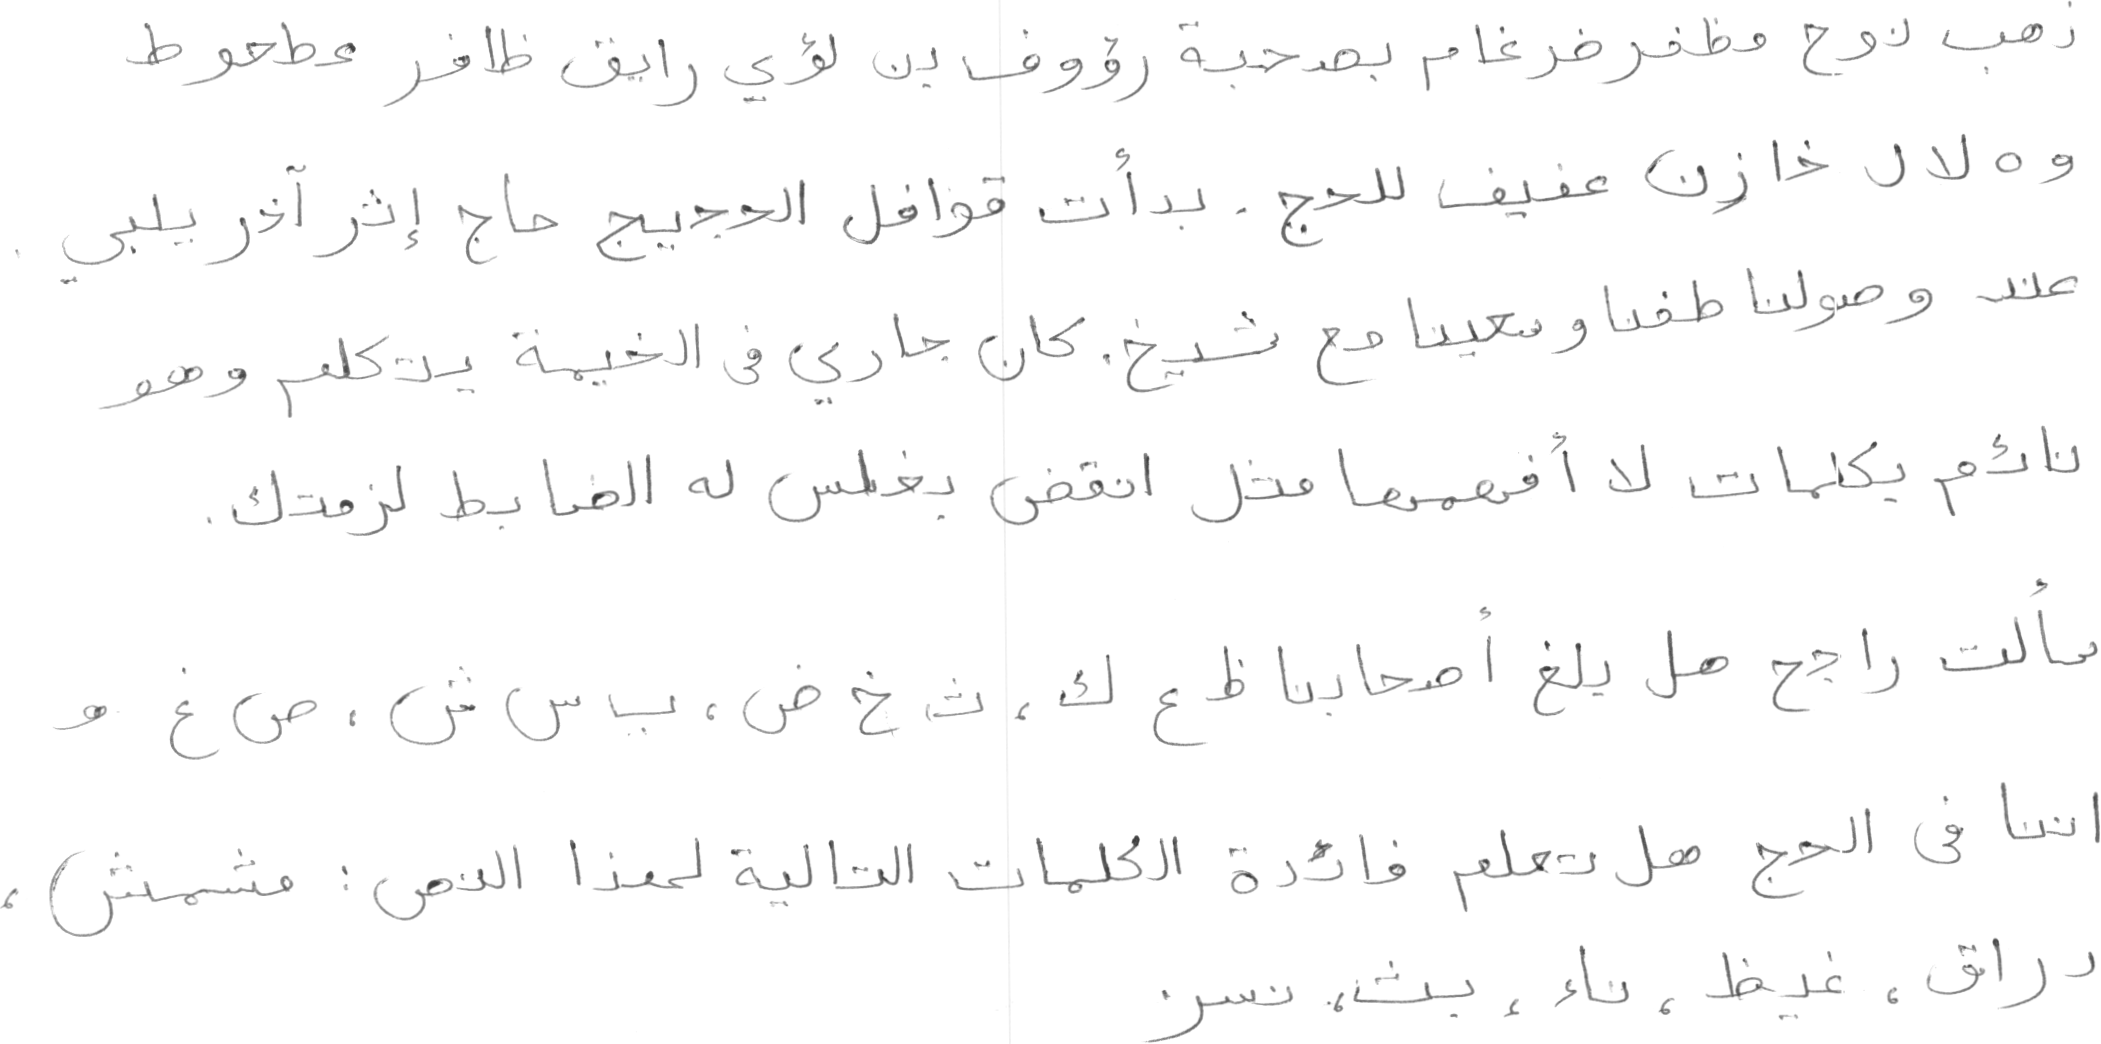 ذهب نوح مظفر ضرغام بصحبة رؤوف بن لؤي رايق ظافر عطحوط
و ه لال خازن عفيف للحج . بدأت قوافل الحجيج حاج إثر آخر يلبي .
عند وصولنا طفنا وسعينا مع شيخ . كان جاري فى الخيمة يتكلم وهو
نائم بكلمات لا أفهمها مثل انقض بغلس له الضابط لزمتك .
سألت راجح هل بلغ أصحابنا ظ ع ك ، ث خ ض ، ب س ش ، ص غ و
اننا فى الحج هل تعلم فائدة الكلمات التالية لهذا النص : مشمش ،
دراق ، غيظ ، ناء ، بث ، نسر